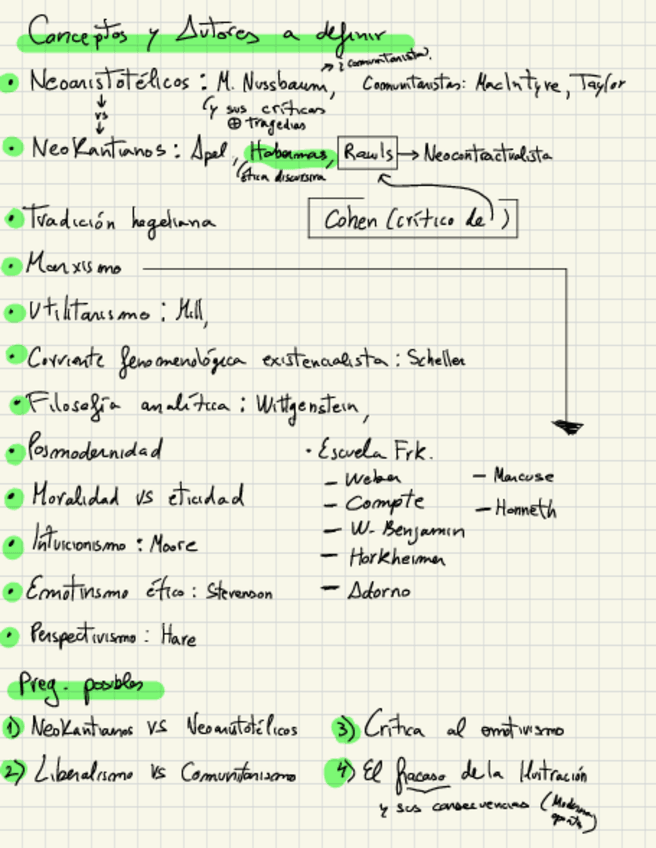 Conceptos y Autores a definir
→ ¿comunitarista?
• Neoaristotélicos : M. Nussbaum, Comunitaristas: MacIntyre, Taylor
↓ vs ↓
y sus críticas
⊕ tragedias
• NeoKantianos : Apel, Habermas, Rawls → Neocontractualista
ética discursiva
• Tradición hegeliana
Cohen (crítico de )
• Marxismo
• Utilitarismo : Mill,
• Corriente fenomenológica existencialista : Scheller
• Filosofía analítica : Wittgenstein,
• Posmodernidad
• Moralidad vs eticidad
• Intuicionismo : Moore
• Emotivismo ético : Stevenson
• Perspectivismo : Hare
· Escuela Frk.
– Weber
– Compte
– W. Benjamin
– Horkheimer
– Adorno
– Marcuse
– Honneth
Preg. posibles
1) NeoKantianos VS Neoaristotélicos
2) Liberalismo vs Comunitarismo
3) Crítica al emotivismo
4) El fracaso de la Ilustración
y sus consecuencias